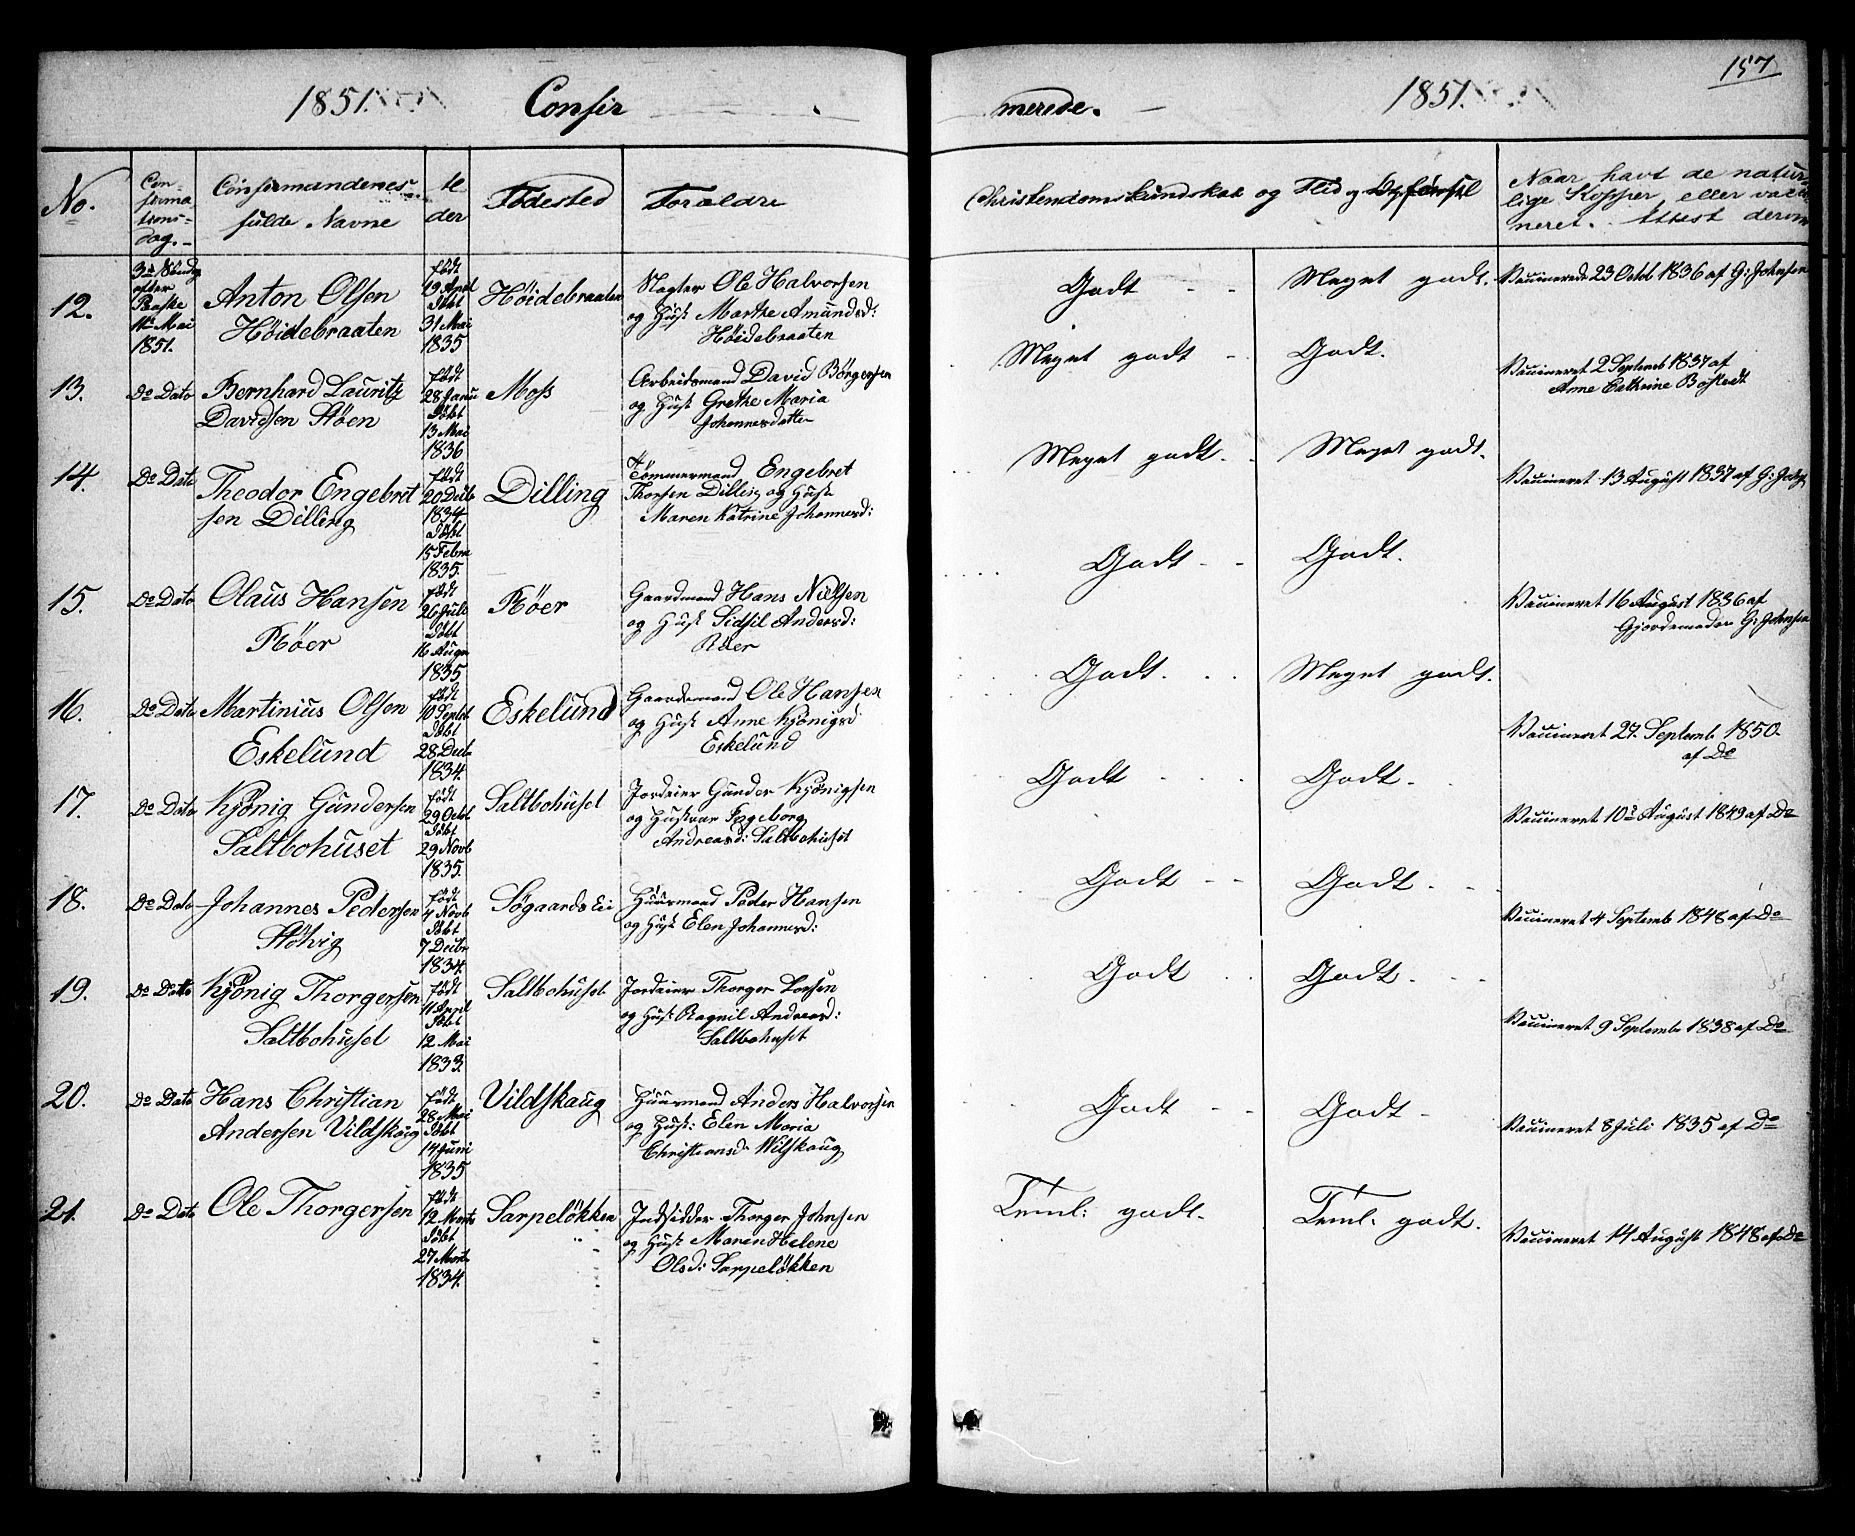 157
1851. Confir merede. 1851.
No.
Con-
firma
tions-
dag.
Confirmandenes
fulde Navne
Al
der
Fødested
Forældre
Christendomskundskab og Flid og Opførsel
Naar havt de natur-
lige Kopper eller vacci-
neret. Attest derom
12.
3die Søndag
efter
Paaske
11te Mai
1851.
Anton Olsen
Høidebraaten
født
19 April
døbt
31 Mai
1835
Høidebraaten
Ole Halvorsen
og Hust Marthe Amundsd:
Høidebraaten
Godt
Meget godt.
Vaccinerede 23 Octob 1836 af G: Johnsen
13.
Do Dato
Bernhard Lauritz
Davidsen Støen
født
28 Janu
døbt
13 Mai
1836
Moss
Arbeidsmand David Børgersen
og Hust Grethe Maria
Johannesdatter
Meget godt
Godt.
Vaccineret 2 Septemb 1837 af
Anne Cathrine
14.
Do Dato
Theodor Engebret
sen Dilling
født
20 Decb
1834
døbt
15 Febru
1835.
Dilling
Tømmermand Engebret
Thorsen Dilling og Hust
Maren Katrine Johannesd:
Meget godt.
Meget godt.
Vaccineret 13 August 1837 af G:
15.
Do Dato
Olaus Hansen
Røer
født
26 Juli
døbt
16 Augu
1835
Røer
Gaardmand Hans Nielsen
og Hust Sidsil Andersd:
Røer
Godt
Godt.
Vaccineret 16 August 1836 af
Gjordemoder G: Johnsen
16.
Do Dato
Martinius Olsen
Eskelund
født
10 Septbr
døbt
28 Decb
1834.
Eskelund
Gaardmand Ole Hansen
og Hust Anne Kjønigsd
Eskelund
Godt.
Meget godt.
Vaccineret 27. Septemb 1850.
af Do
17.
Do Dato
Kjønig Gundersen
Saltbohuset
født
29 Octob
døbt
29 Novb
1835.
Saltbohuset
Jordeier Gunder Kjønigsen
og Hustrue Ingeborg
Andreasd: Saltbohuset
Godt
Godt
Vaccineret 10de August 1849 af Do
18.
Do Dato
Johannes Pedersen
Støtvig
født
4 Novb
døbt
7 Decbr
1834.
Søgaards Ei
Huusmand Peder Hansen
og Hust Elen Johannesd:
Godt
Godt
Vaccineret 4 Septemb 1848 af Do
19.
Do Datto
Kjønig Thorgersen
Saltbohuset
født
11 April
døbt
12 Mai
1833.
Saltbohuset
Jordeier Thorger Larsen
og Hust Ragnil Andreasd:
Saltbohuset
Godt
Godt
Vaccineret 9 Septembe 1838 af Do
20.
Do Dato
Hans Christian
Andersen Vildskaug
født
28 Mai
døbt
14 Juni
1835
Vildskaug
Huusmand Anders Halvorsen
og Hust: Elen Maria
Christiansd: Wilskaug
Godt
Godt
Vaccineret 8 Juli 1835 af Do
21.
Do Dato
Ole Thorgersen
født
12 Marts
døbt
27 Marts
1834.
Sarpeløkken
Indsidder Thorger Johnsen
og Hust Maren Helene
Olsd: Sarpeløkken
Teml: godt.
Teml: godt.
Vaccineret 14 August 1848 af Do